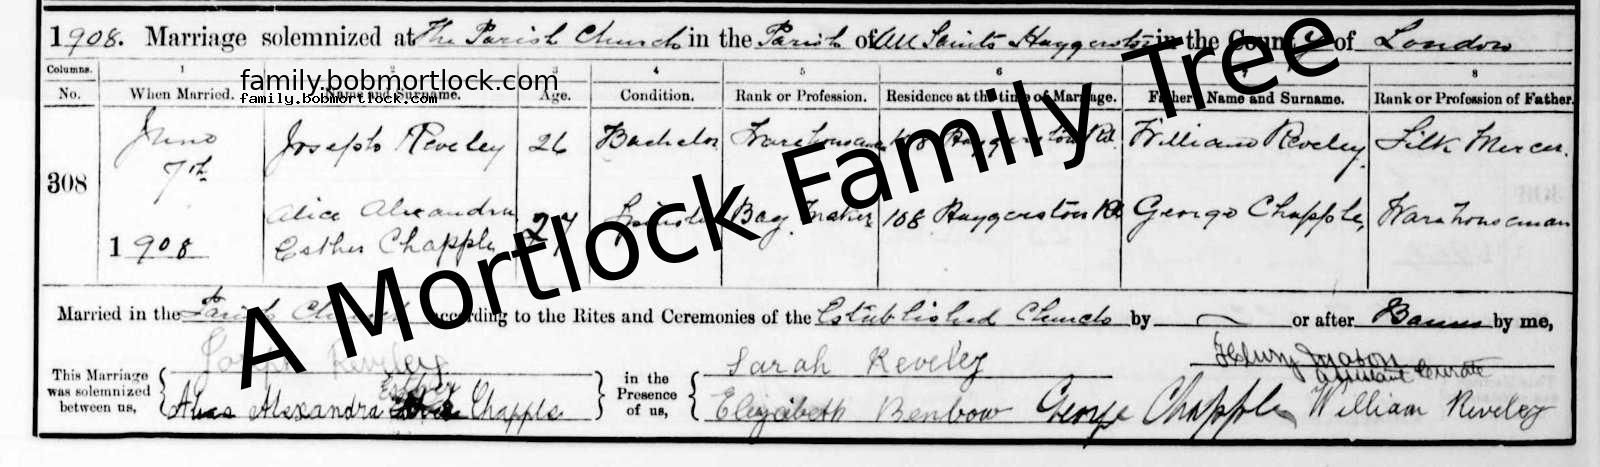 1908. Marriage solemnized at The Parish Church in the Parish of All Saints Haggerston in the County of London
Columns. 1 2 3 4 5 6 7 8
No. When Married. Name and Surname. Age. Condition. Rank or Profession. Residence at the time of Marriage. Father's Name and Surname. Rank or Profession of Father.
family.bobmortlock.com
family.bobmortlock.com
308 June 7th 1908
Joseph Reveley 26 Bachelor Warehouseman 108 Haggerston Rd. William Reveley Silk Mercer.
Alice Alexandra Esther Chapple 27 Spinster Bag Maker 108 Haggerston Rd George Chapple Warehouseman
Married in the Parish Church according to the Rites and Ceremonies of the Established Church by or after Banns by me,
This Marriage was solemnized between us,
Joseph Reveley
Esther
Alice Alexandra Chapple
in the Presence of us,
Sarah Reveley
Elizabeth Benbow George Chapple William Reveley
Henry Mason
Assistant Curate
A Mortlock Family Tree